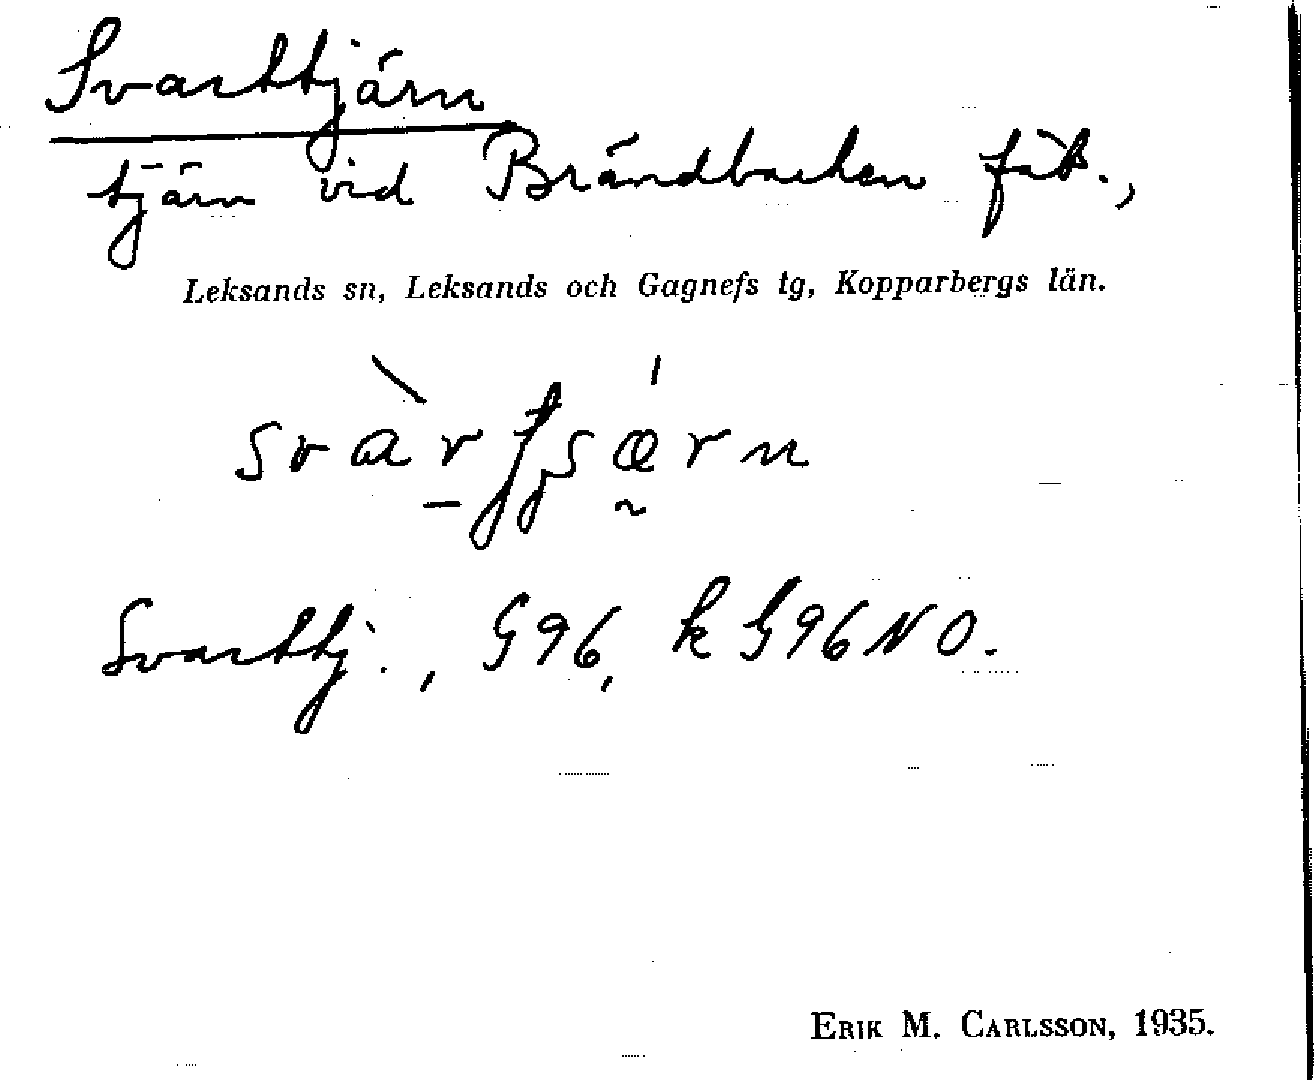 Svarttjärn
tjärn vid Brändbacken fäb.,
Leksands sn, Leksands och Gagnefs tg, Kopparbergs län.
Svarttj., G96, k G96NO.
ERIK M. CARLSSON, 1935.